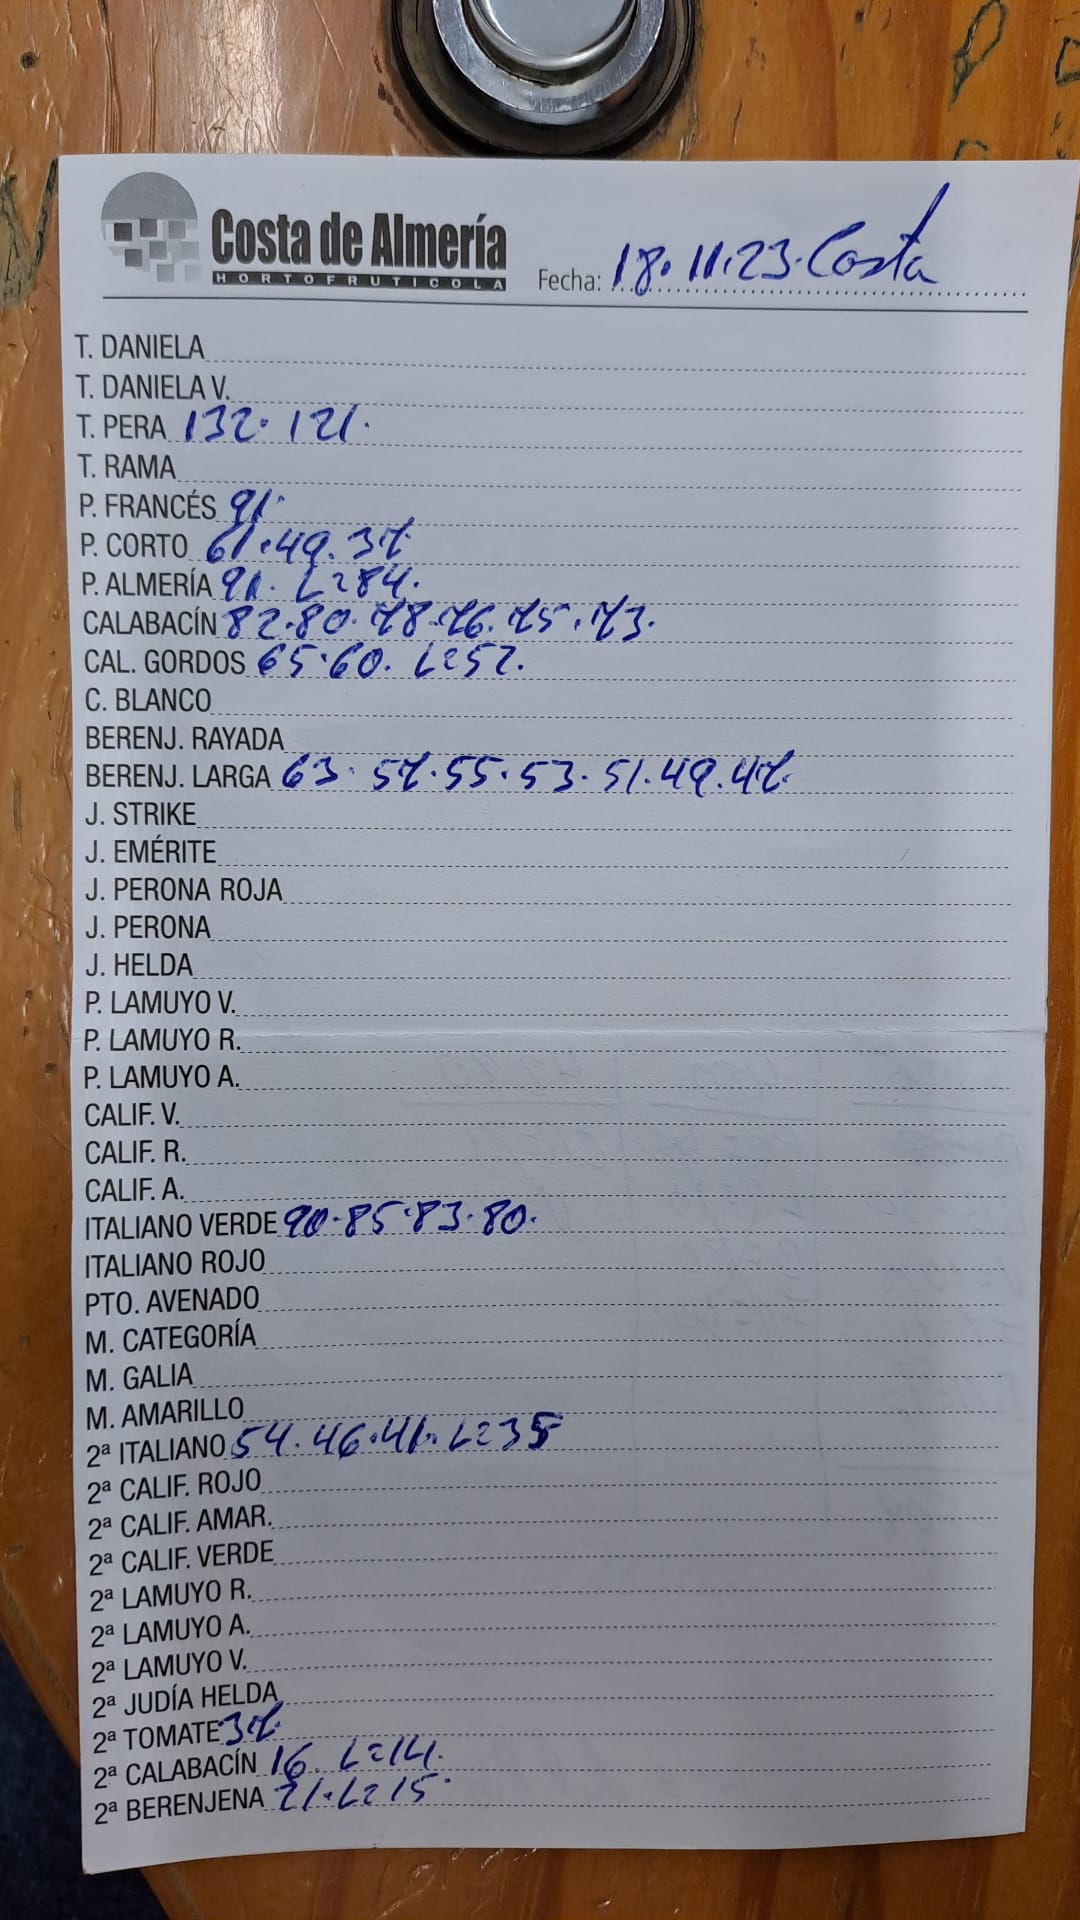 Costa de Almería
HORTOFRUTICOLA
Fecha: 18.11.23. Costa
T. DANIELA
T. DANIELA V.
T. PERA 132. 121.
T. RAMA
P. FRANCÉS 91.
P. CORTO 61.49.37.
P. ALMERÍA 91. L=84.
CALABACÍN 82.80.78.76.75.73.
CAL. GORDOS 65.60. L=52.
C. BLANCO
BERENJ. RAYADA
BERENJ. LARGA 63. 57.55.53.51.49.47.
J. STRIKE
J. EMÉRITE
J. PERONA ROJA
J. PERONA
J. HELDA
P. LAMUYO V.
P. LAMUYO R.
P. LAMUYO A.
CALIF. V.
CALIF. R.
CALIF. A.
ITALIANO VERDE 90.85.83.80.
ITALIANO ROJO
PTO. AVENADO
M. CATEGORÍA
M. GALIA
M. AMARILLO
2ª ITALIANO 54.46.41. L=35
2ª CALIF. ROJO
2ª CALIF. AMAR.
2ª CALIF. VERDE
2ª LAMUYO R.
2ª LAMUYO A.
2ª LAMUYO V.
2ª JUDÍA HELDA
2ª TOMATE 37.
2ª CALABACÍN 16. L=14.
2ª BERENJENA 21. L=15.